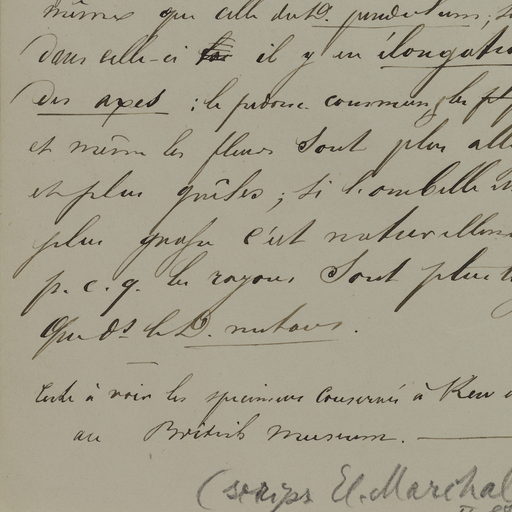 mêmes que celle du D. pendulum; si
dans celle-ci il y en élongation
des axes : le pédonc. commun, les
et même les fleurs sont plus
et plus grêles; si l'ombelle
plus grosse c'est naturellement
p. c. q. les rayons sont plus
que ds le D. nutans.
reste à voir les specimens conservés à Kew
au British Museum.
(scrips. El. Marchal